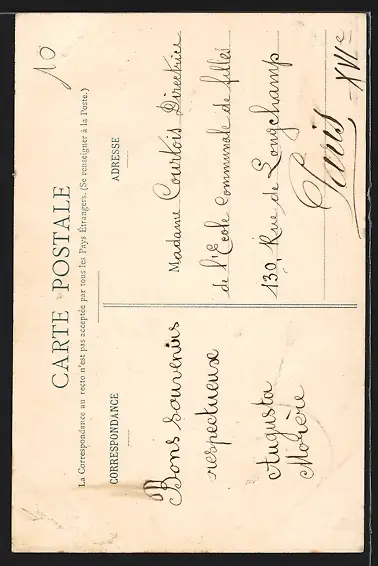 10
CARTE POSTALE
La Correspondance au recto n'est pas acceptée par tous les Pays Étrangers. (Se renseigner à la Poste.)
CORRESPONDANCE
Bons souvenirs
respectueux
Augusta
Mozère
ADRESSE
Madame Courtois Directrice
de l'École Communale de filles
130, Rue de Longchamp
Paris
XVIe